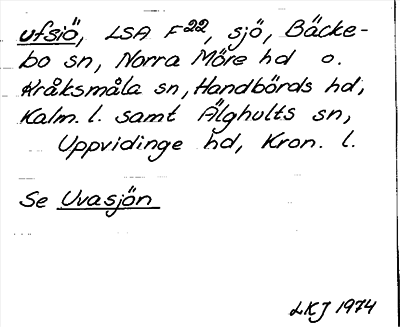 ufsiö, LSA F22, sjö, Bäcke-
bo sn, Norra Möre hd o.
Kråksmåla sn, Handbörds hd,
Kalm. l. samt Älghults sn,
Uppvidinge hd, Kron. l.
Se Uvasjön
LKJ 1974